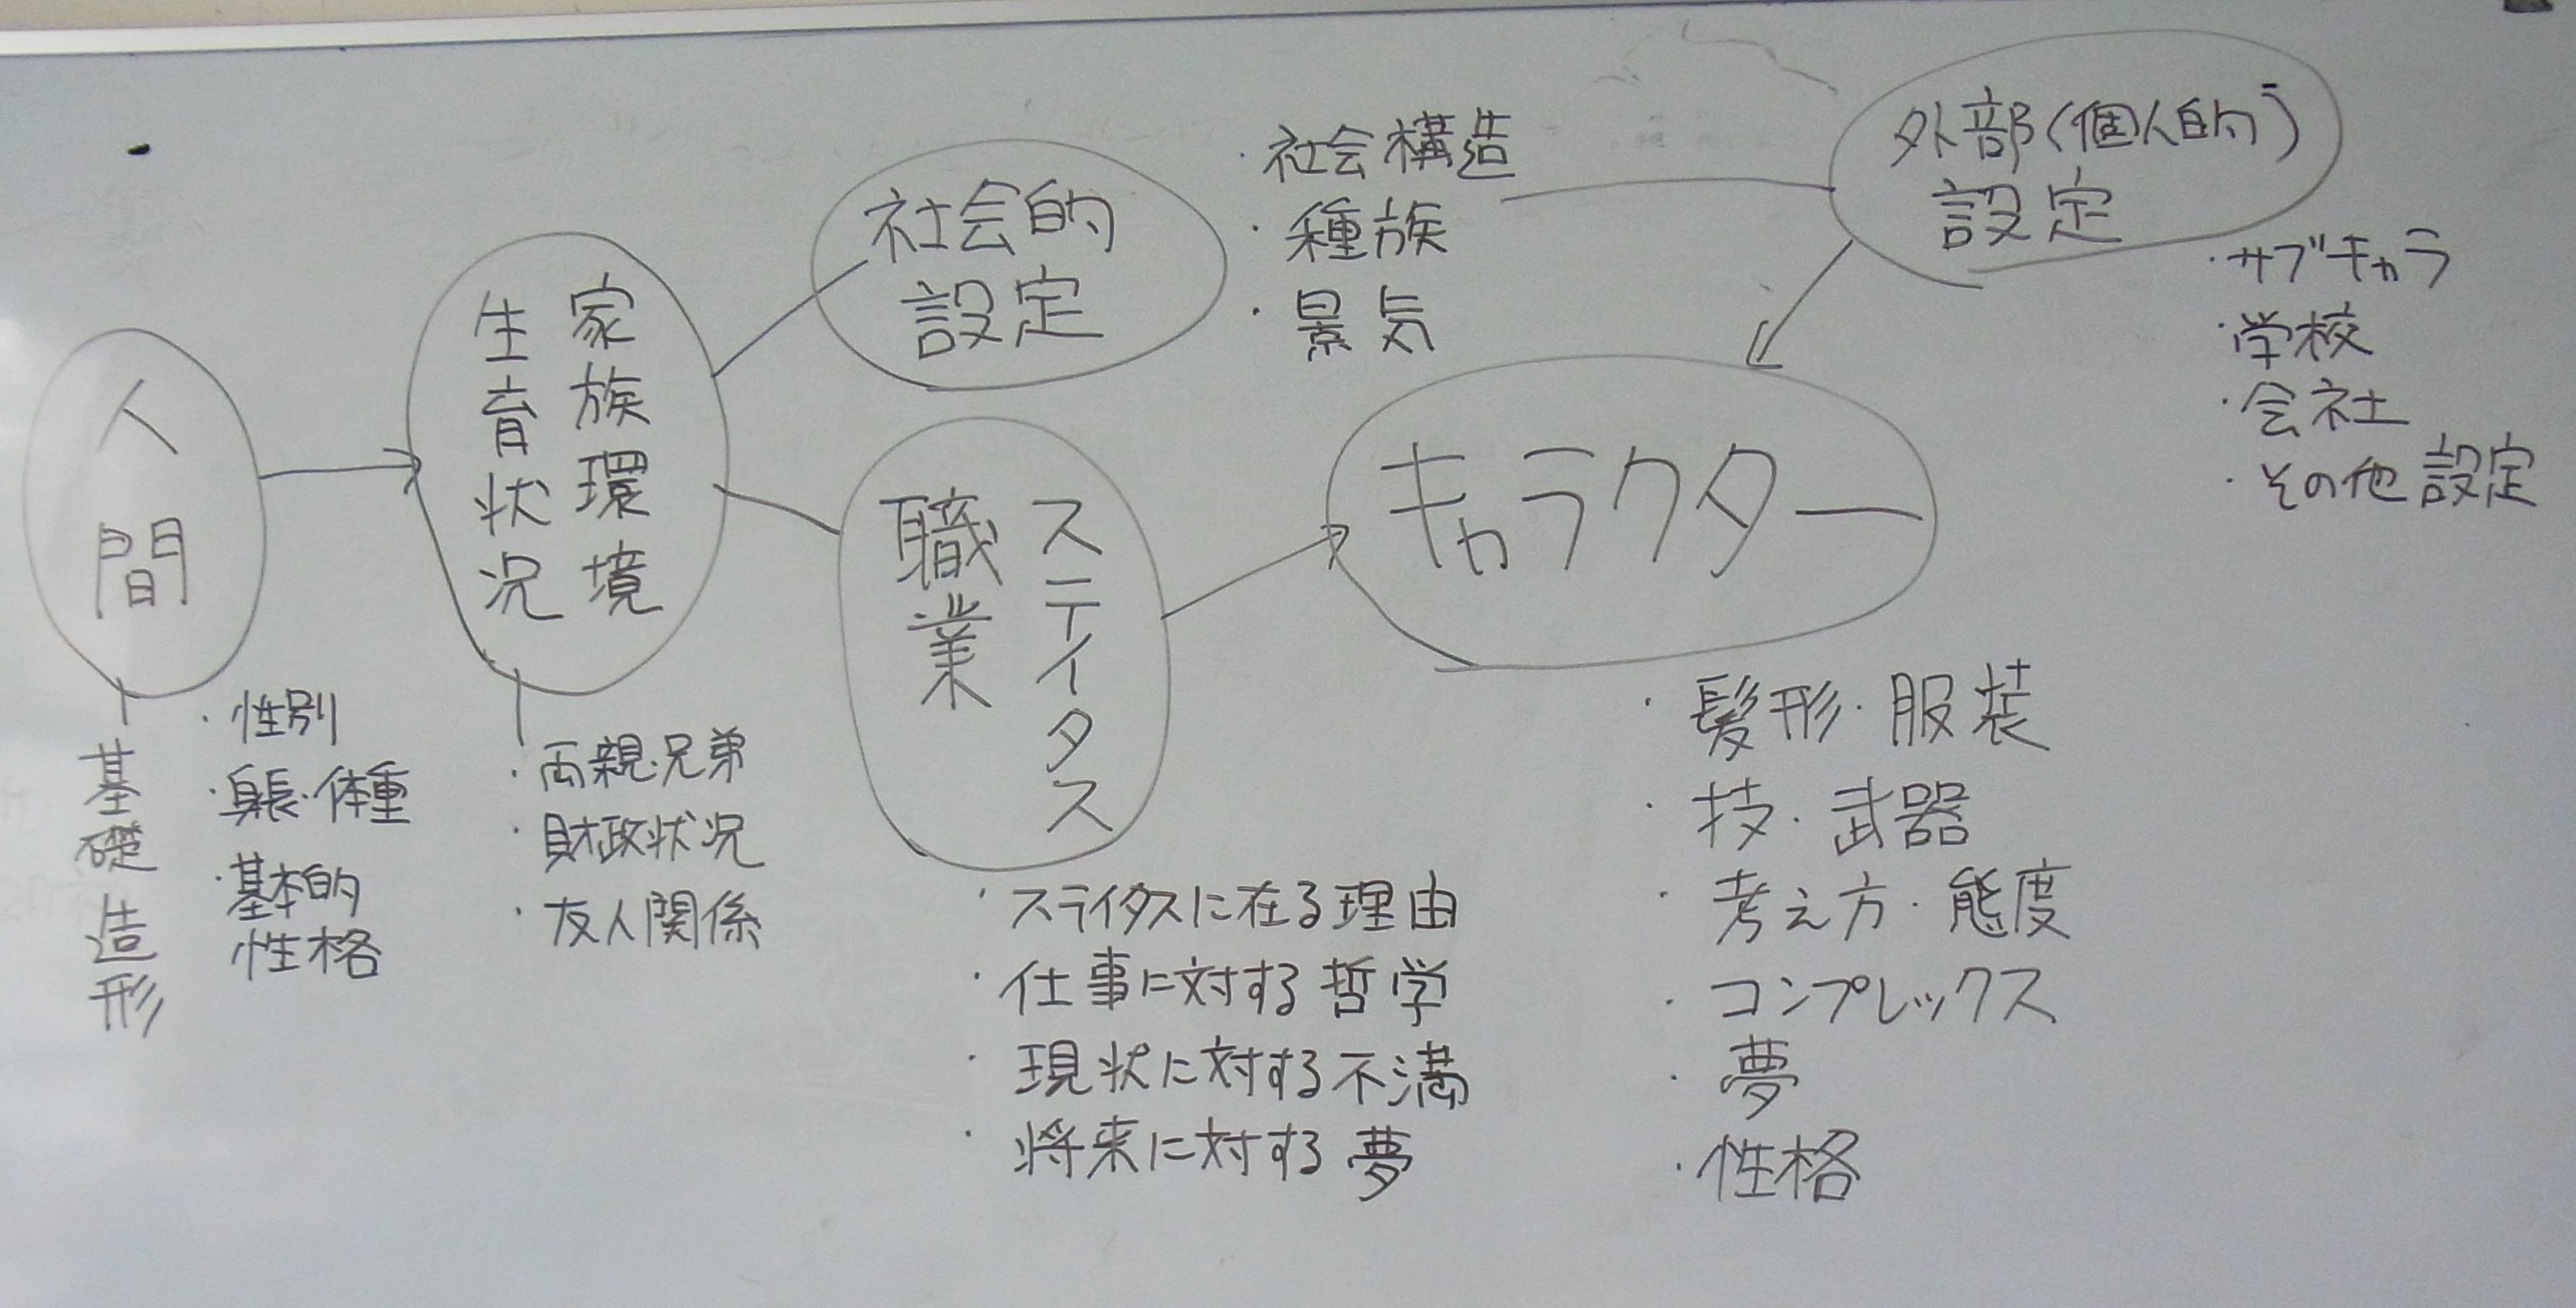 人間
基礎造形
・性別
・身長・体重
・基本的
性格
家族環境
生育状況
・両親・兄弟
・財政状況
・友人関係
社会的
設定
・社会構造
・種族
・景気
ステイタス
職業
・ステイタスに在る理由
・仕事に対する哲学
・現状に対する不満
・将来に対する夢
外部(個人的)
設定
・サブキャラ
・学校
・会社
・その他設定
キャラクター
・髪形・服装
・技・武器
・考え方・態度
・コンプレックス
・夢
・性格